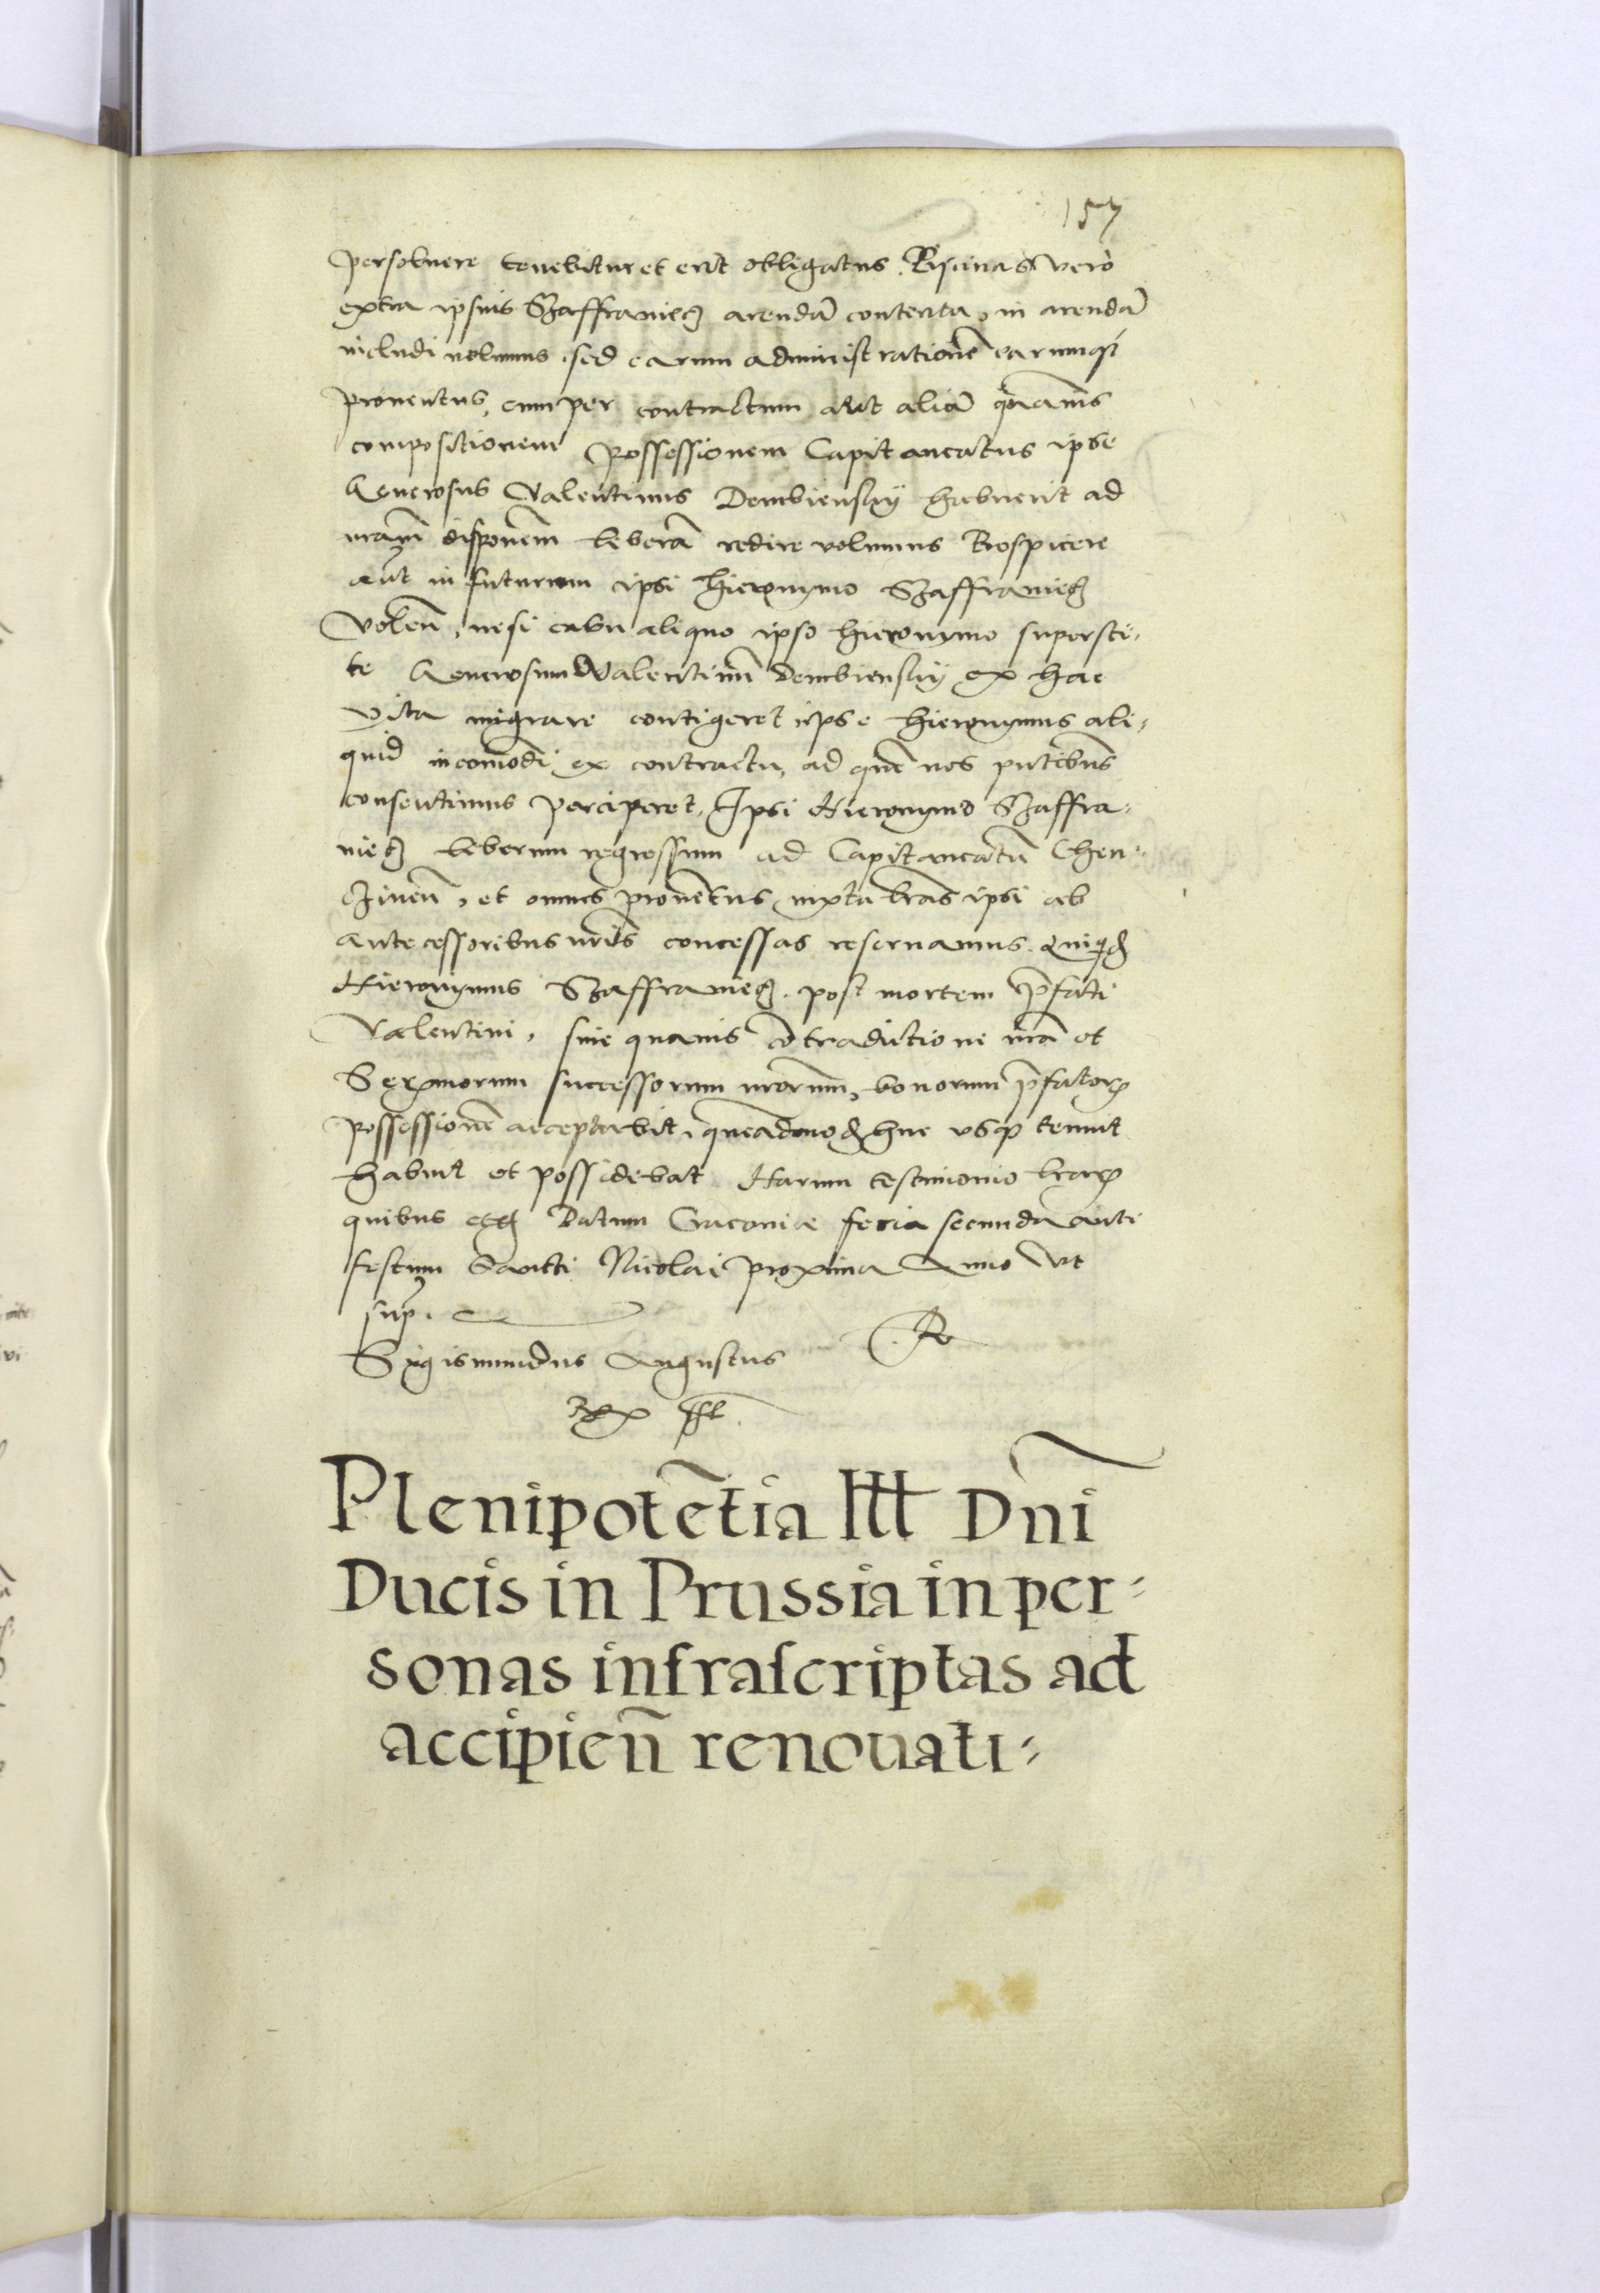 157
persoluere tenebitur et erit obligatus. Piscinas vero
extra ipsius Szaffranieć arendā contenta, in arendā
includi nolumus, sed earum administrationē earumqȝ
prouentus, cum per contractum aut aliā quāuis
compositionem possessionem Capitaneatus ipse
Generosus Valentinus Dembienskÿ habuerit ad
nrām dispōnem liberā redire volumus Prospicere
aūt in futurum ipsi Hieronymo Szaffranieć
Volen̄, ne si casu aliquo ipso Hieronymo supersti-
te Generosum Valentinū Dembienskÿ ex hac
vita migrare contigeret ipse Hieronymus ali-
quid incōmodi ex contractu, ad quē nos pntibus
consentimus perciperet, Ipsi Hieronymo Szaffra-
nieć liberum regressum ad Capitaneatū Chen-
cinen̄, et omnes prouentus iuxta lrās ipsi ab
antecessoribus nris concessas reseruamus. Quiqdē
Hieronymus Szaffranieć post mortem p̄fati
Valentini, sine quauis cōtradictione nrā et
Sermorum successorum nrorum, bonorum p̄fatorꝫ
possessionē acceptabit, quēadmodū huc vsqȝ tenuit
habuit et possidebat Harum testimonio lrarꝫ
quibus etc̄ Datum Cracouiæ feria secunda ante
festum Sancti Nicolai proxima Anno vt
sup̄.
Sigismundus Augustus R
Rex sst
Plenipotētia Illl Dn̄i
Ducis in Prussia in per-
sonas infrascriptas ad
accipien̄ renouati-